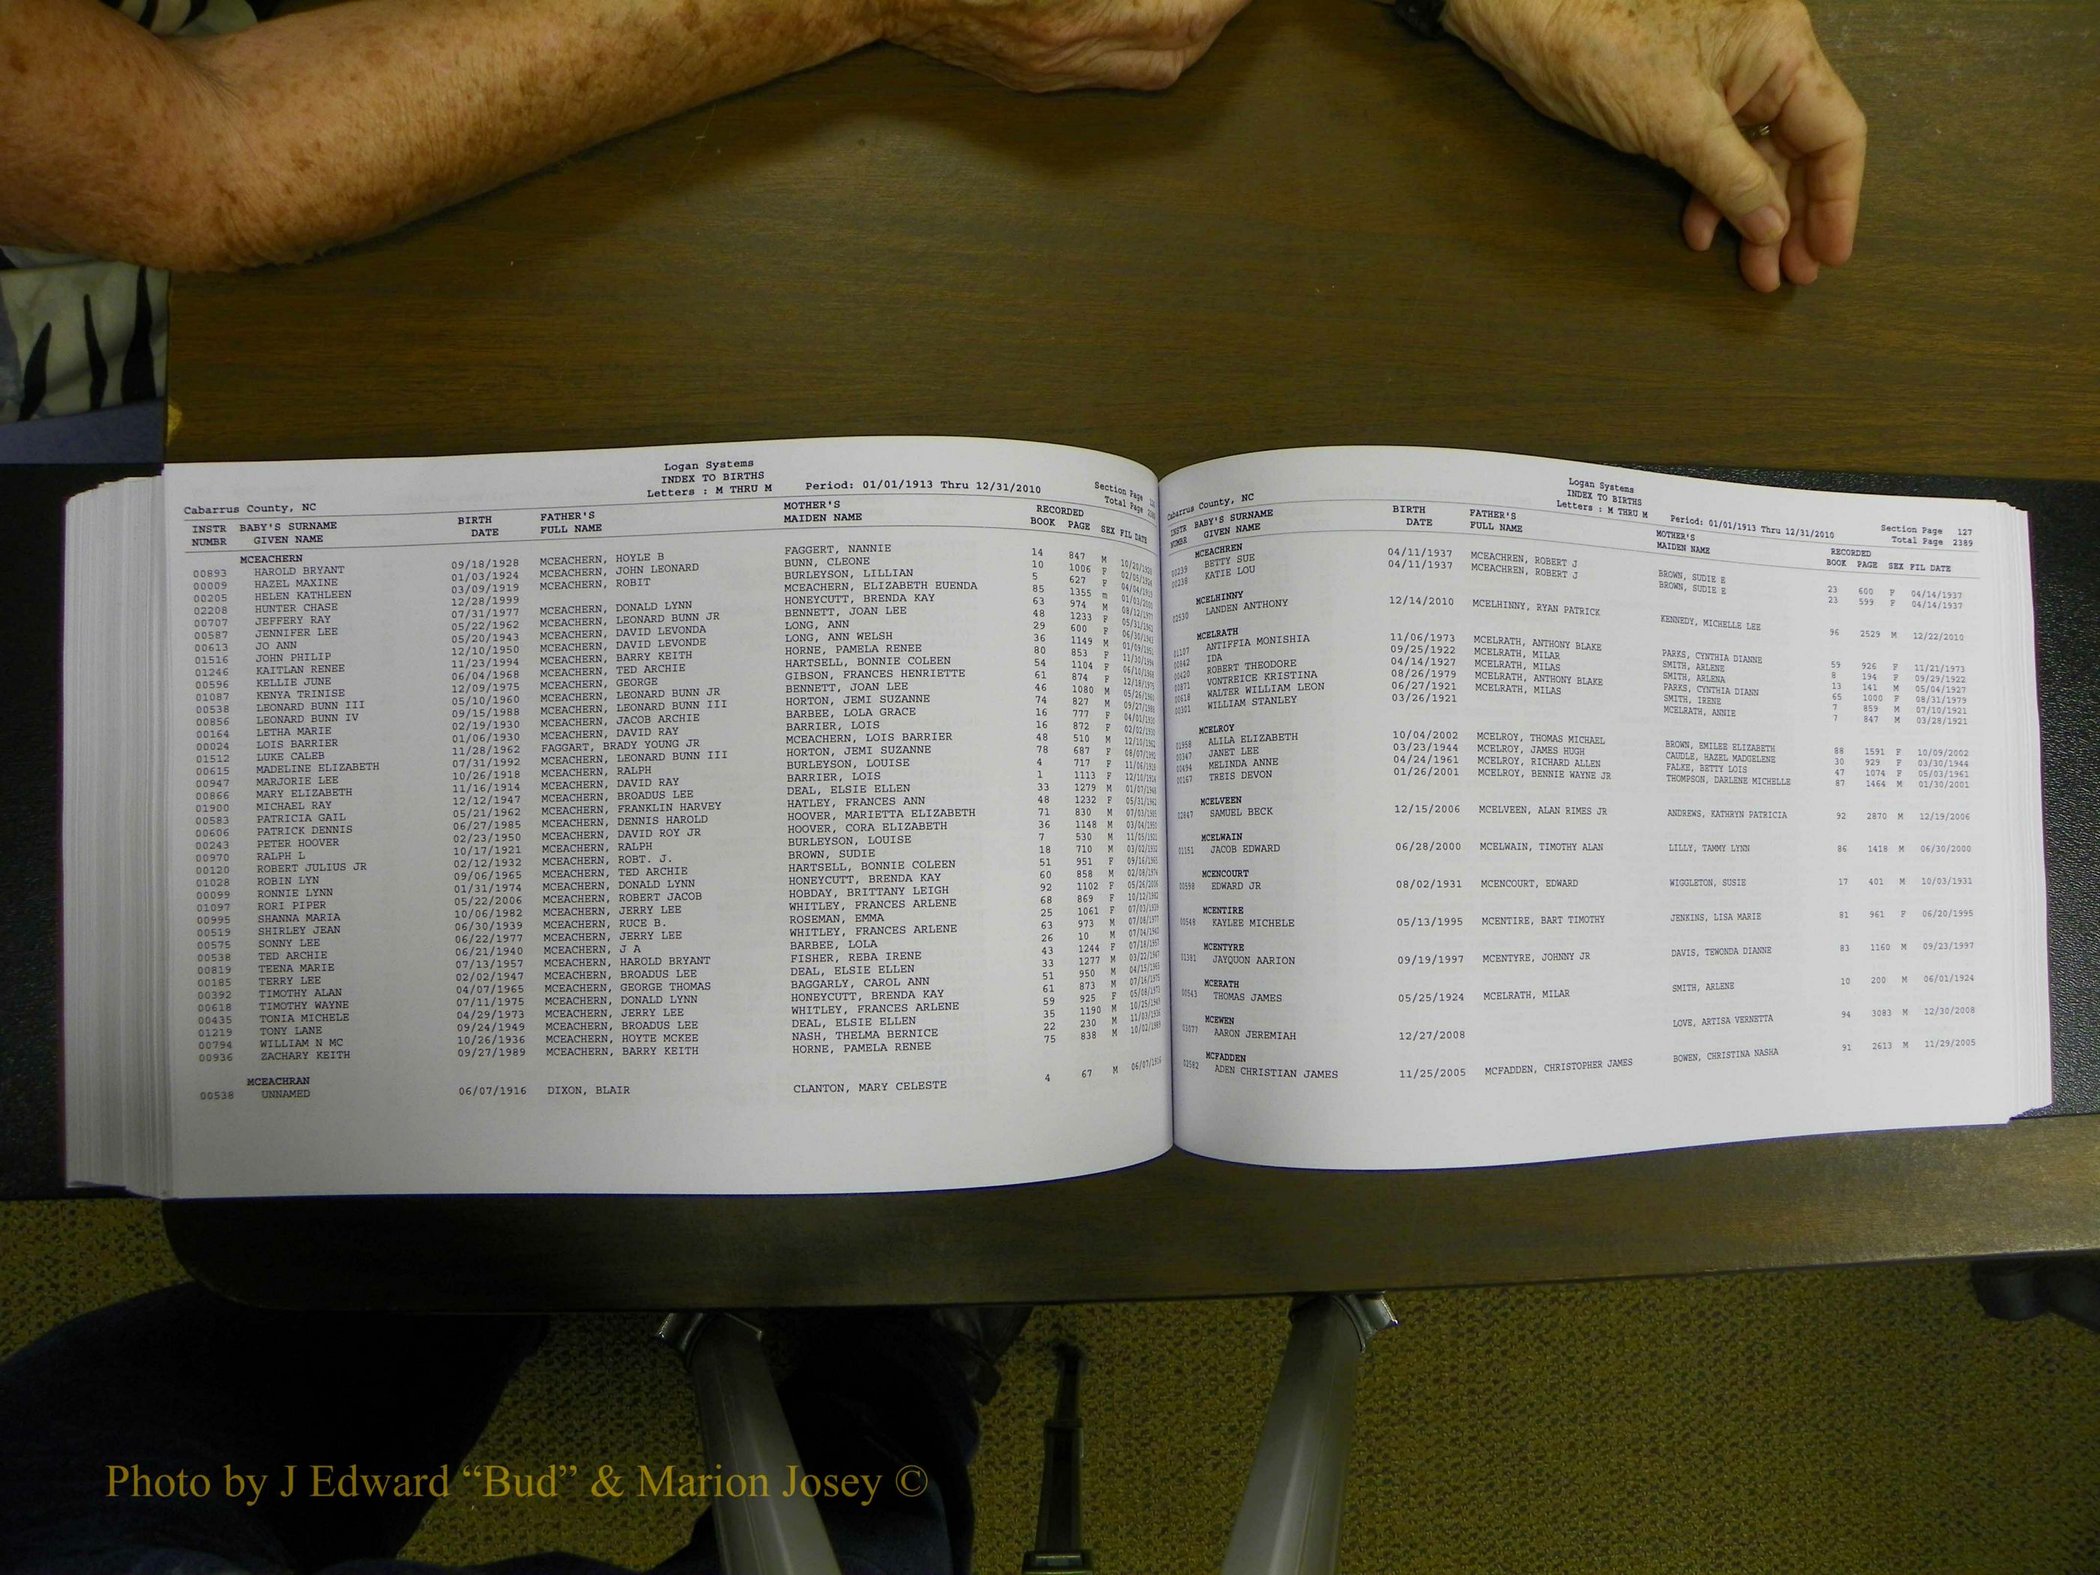 Logan Systems
INDEX TO BIRTHS
Cabarrus County, NC Letters : M THRU M Period: 01/01/1913 Thru 12/31/2010 Section Page
Total Page
INSTR NUMBR BABY'S SURNAME GIVEN NAME BIRTH DATE FATHER'S FULL NAME MOTHER'S MAIDEN NAME RECORDED BOOK PAGE SEX FIL DATE
MCEACHERN
00893 HAROLD BRYANT 09/18/1928 MCEACHERN, HOYLE B FAGGERT, NANNIE 14 847 M 10/20/1928
00009 HAZEL MAXINE 01/03/1924 MCEACHERN, JOHN LEONARD BUNN, CLEONE 10 1006 F 02/05/1924
00205 HELEN KATHLEEN 03/09/1919 MCEACHERN, ROBIT BURLEYSON, LILLIAN 5 627 F 04/04/1919
02208 HUNTER CHASE 12/28/1999 MCEACHERN, ELIZABETH EUENDA 85 1355 m 01/03/2000
00707 JEFFERY RAY 07/31/1977 MCEACHERN, DONALD LYNN HONEYCUTT, BRENDA KAY 63 974 M 08/12/1977
00587 JENNIFER LEE 05/22/1962 MCEACHERN, LEONARD BUNN JR BENNETT, JOAN LEE 48 1233 F 05/31/1962
00613 JO ANN 05/20/1943 MCEACHERN, DAVID LEVONDA LONG, ANN 29 600 F 06/30/1943
01516 JOHN PHILIP 12/10/1950 MCEACHERN, DAVID LEVONDE LONG, ANN WELSH 36 1149 M 01/09/1951
01246 KAITLAN RENEE 11/23/1994 MCEACHERN, BARRY KEITH HORNE, PAMELA RENEE 80 853 F 11/30/1994
00596 KELLIE JUNE 06/04/1968 MCEACHERN, TED ARCHIE HARTSELL, BONNIE COLEEN 54 1104 F 06/10/1968
01087 KENYA TRINISE 12/09/1975 MCEACHERN, GEORGE GIBSON, FRANCES HENRIETTE 61 874 F 12/18/1975
00538 LEONARD BUNN III 05/10/1960 MCEACHERN, LEONARD BUNN JR BENNETT, JOAN LEE 46 1080 M 05/26/1960
00856 LEONARD BUNN IV 09/15/1988 MCEACHERN, LEONARD BUNN III HORTON, JEMI SUZANNE 74 827 M 09/27/1988
00164 LETHA MARIE 02/19/1930 MCEACHERN, JACOB ARCHIE BARBEE, LOLA GRACE 16 777 F 04/01/1930
00024 LOIS BARRIER 01/06/1930 MCEACHERN, DAVID RAY BARRIER, LOIS 16 872 F 02/02/1930
01512 LUKE CALEB 11/28/1962 FAGGART, BRADY YOUNG JR MCEACHERN, LOIS BARRIER 48 510 M 12/10/1962
00615 MADELINE ELIZABETH 07/31/1992 MCEACHERN, LEONARD BUNN III HORTON, JEMI SUZANNE 78 687 F 08/07/1992
00947 MARJORIE LEE 10/26/1918 MCEACHERN, RALPH BURLEYSON, LOUISE 4 717 F 11/06/1918
00866 MARY ELIZABETH 11/16/1914 MCEACHERN, DAVID RAY BARRIER, LOIS 1 1113 F 12/10/1914
01900 MICHAEL RAY 12/12/1947 MCEACHERN, BROADUS LEE DEAL, ELSIE ELLEN 33 1279 M 01/07/1948
00583 PATRICIA GAIL 05/21/1962 MCEACHERN, FRANKLIN HARVEY HATLEY, FRANCES ANN 48 1232 F 05/31/1962
00606 PATRICK DENNIS 06/27/1985 MCEACHERN, DENNIS HAROLD HOOVER, MARIETTA ELIZABETH 71 830 M 07/03/1985
00243 PETER HOOVER 02/23/1950 MCEACHERN, DAVID ROY JR HOOVER, CORA ELIZABETH 36 1148 M 03/04/1950
00970 RALPH L 10/17/1921 MCEACHERN, RALPH BURLEYSON, LOUISE 7 530 M 11/05/1921
00120 ROBERT JULIUS JR 02/12/1932 MCEACHERN, ROBT. J. BROWN, SUDIE 18 710 M 03/02/1932
01028 ROBIN LYN 09/06/1965 MCEACHERN, TED ARCHIE HARTSELL, BONNIE COLEEN 51 951 F 09/16/1965
00099 RONNIE LYNN 01/31/1974 MCEACHERN, DONALD LYNN HONEYCUTT, BRENDA KAY 60 858 M 02/08/1974
01097 RORI PIPER 05/22/2006 MCEACHERN, ROBERT JACOB HOBDAY, BRITTANY LEIGH 92 1102 F 05/26/2006
00995 SHANNA MARIA 10/06/1982 MCEACHERN, JERRY LEE WHITLEY, FRANCES ARLENE 68 869 F 10/12/1982
00519 SHIRLEY JEAN 06/30/1939 MCEACHERN, RUCE B. ROSEMAN, EMMA 25 1061 F 07/03/1939
00575 SONNY LEE 06/22/1977 MCEACHERN, JERRY LEE WHITLEY, FRANCES ARLENE 63 973 M 07/08/1977
00538 TED ARCHIE 06/21/1940 MCEACHERN, J A BARBEE, LOLA 26 10 M 07/04/1940
00819 TEENA MARIE 07/13/1957 MCEACHERN, HAROLD BRYANT FISHER, REBA IRENE 43 1244 F 07/18/1957
00185 TERRY LEE 02/02/1947 MCEACHERN, BROADUS LEE DEAL, ELSIE ELLEN 33 1277 M 03/22/1947
00392 TIMOTHY ALAN 04/07/1965 MCEACHERN, GEORGE THOMAS BAGGARLY, CAROL ANN 51 950 M 04/15/1965
00618 TIMOTHY WAYNE 07/11/1975 MCEACHERN, DONALD LYNN HONEYCUTT, BRENDA KAY 61 873 M 07/16/1975
00435 TONIA MICHELE 04/29/1973 MCEACHERN, JERRY LEE WHITLEY, FRANCES ARLENE 59 925 F 05/08/1973
01219 TONY LANE 09/24/1949 MCEACHERN, BROADUS LEE DEAL, ELSIE ELLEN 35 1190 M 10/25/1949
00794 WILLIAM N MC 10/26/1936 MCEACHERN, HOYTE MCKEE NASH, THELMA BERNICE 22 230 M 11/03/1936
00936 ZACHARY KEITH 09/27/1989 MCEACHERN, BARRY KEITH HORNE, PAMELA RENEE 75 838 M 10/02/1989
MCEACHRAN
00538 UNNAMED 06/07/1916 DIXON, BLAIR CLANTON, MARY CELESTE 4 67 M 06/07/1916
Logan Systems
INDEX TO BIRTHS
Cabarrus County, NC Letters : M THRU M Period: 01/01/1913 Thru 12/31/2010 Section Page 127
Total Page 2389
INSTR NUMBR BABY'S SURNAME GIVEN NAME BIRTH DATE FATHER'S FULL NAME MOTHER'S MAIDEN NAME RECORDED BOOK PAGE SEX FIL DATE
MCEACHREN
00239 BETTY SUE 04/11/1937 MCEACHREN, ROBERT J BROWN, SUDIE E 23 600 F 04/14/1937
00238 KATIE LOU 04/11/1937 MCEACHREN, ROBERT J BROWN, SUDIE E 23 599 F 04/14/1937
MCELHINNY
02530 LANDEN ANTHONY 12/14/2010 MCELHINNY, RYAN PATRICK KENNEDY, MICHELLE LEE 96 2529 M 12/22/2010
MCELRATH
01107 ANTIFFIA MONISHIA 11/06/1973 MCELRATH, ANTHONY BLAKE PARKS, CYNTHIA DIANNE 59 926 F 11/21/1973
00842 IDA 09/25/1922 MCELRATH, MILAR SMITH, ARLENE 8 194 F 09/29/1922
00420 ROBERT THEODORE 04/14/1927 MCELRATH, MILAS SMITH, ARLENA 13 141 M 05/04/1927
00871 VONTREICE KRISTINA 08/26/1979 MCELRATH, ANTHONY BLAKE PARKS, CYNTHIA DIANN 65 1000 F 08/31/1979
00618 WALTER WILLIAM LEON 06/27/1921 MCELRATH, MILAS SMITH, IRENE 7 859 M 07/10/1921
00301 WILLIAM STANLEY 03/26/1921 MCELRATH, ANNIE 7 847 M 03/28/1921
MCELROY
01958 ALILA ELIZABETH 10/04/2002 MCELROY, THOMAS MICHAEL BROWN, EMILEE ELIZABETH 88 1591 F 10/09/2002
00347 JANET LEE 03/23/1944 MCELROY, JAMES HUGH CAUDLE, HAZEL MADGELENE 30 929 F 03/30/1944
00494 MELINDA ANNE 04/24/1961 MCELROY, RICHARD ALLEN FALKE, BETTY LOIS 47 1074 F 05/03/1961
00167 TREIS DEVON 01/26/2001 MCELROY, BENNIE WAYNE JR THOMPSON, DARLENE MICHELLE 87 1464 M 01/30/2001
MCELVEEN
02847 SAMUEL BECK 12/15/2006 MCELVEEN, ALAN RIMES JR ANDREWS, KATHRYN PATRICIA 92 2870 M 12/19/2006
MCELWAIN
01151 JACOB EDWARD 06/28/2000 MCELWAIN, TIMOTHY ALAN LILLY, TAMMY LYNN 86 1418 M 06/30/2000
MCENCOURT
00598 EDWARD JR 08/02/1931 MCENCOURT, EDWARD WIGGLETON, SUSIE 17 401 M 10/03/1931
MCENTIRE
00548 KAYLEE MICHELE 05/13/1995 MCENTIRE, BART TIMOTHY JENKINS, LISA MARIE 81 961 F 06/20/1995
MCENTYRE
01381 JAYQUON AARION 09/19/1997 MCENTYRE, JOHNNY JR DAVIS, TEWONDA DIANNE 83 1160 M 09/23/1997
MCERATH
00543 THOMAS JAMES 05/25/1924 MCELRATH, MILAR SMITH, ARLENE 10 200 M 06/01/1924
MCEWEN
03077 AARON JEREMIAH 12/27/2008 LOVE, ARTISA VERNETTA 94 3083 M 12/30/2008
MCFADDEN
02582 ADEN CHRISTIAN JAMES 11/25/2005 MCFADDEN, CHRISTOPHER JAMES BOWEN, CHRISTINA NASHA 91 2613 M 11/29/2005
Photo by J Edward “Bud” & Marion Josey ©